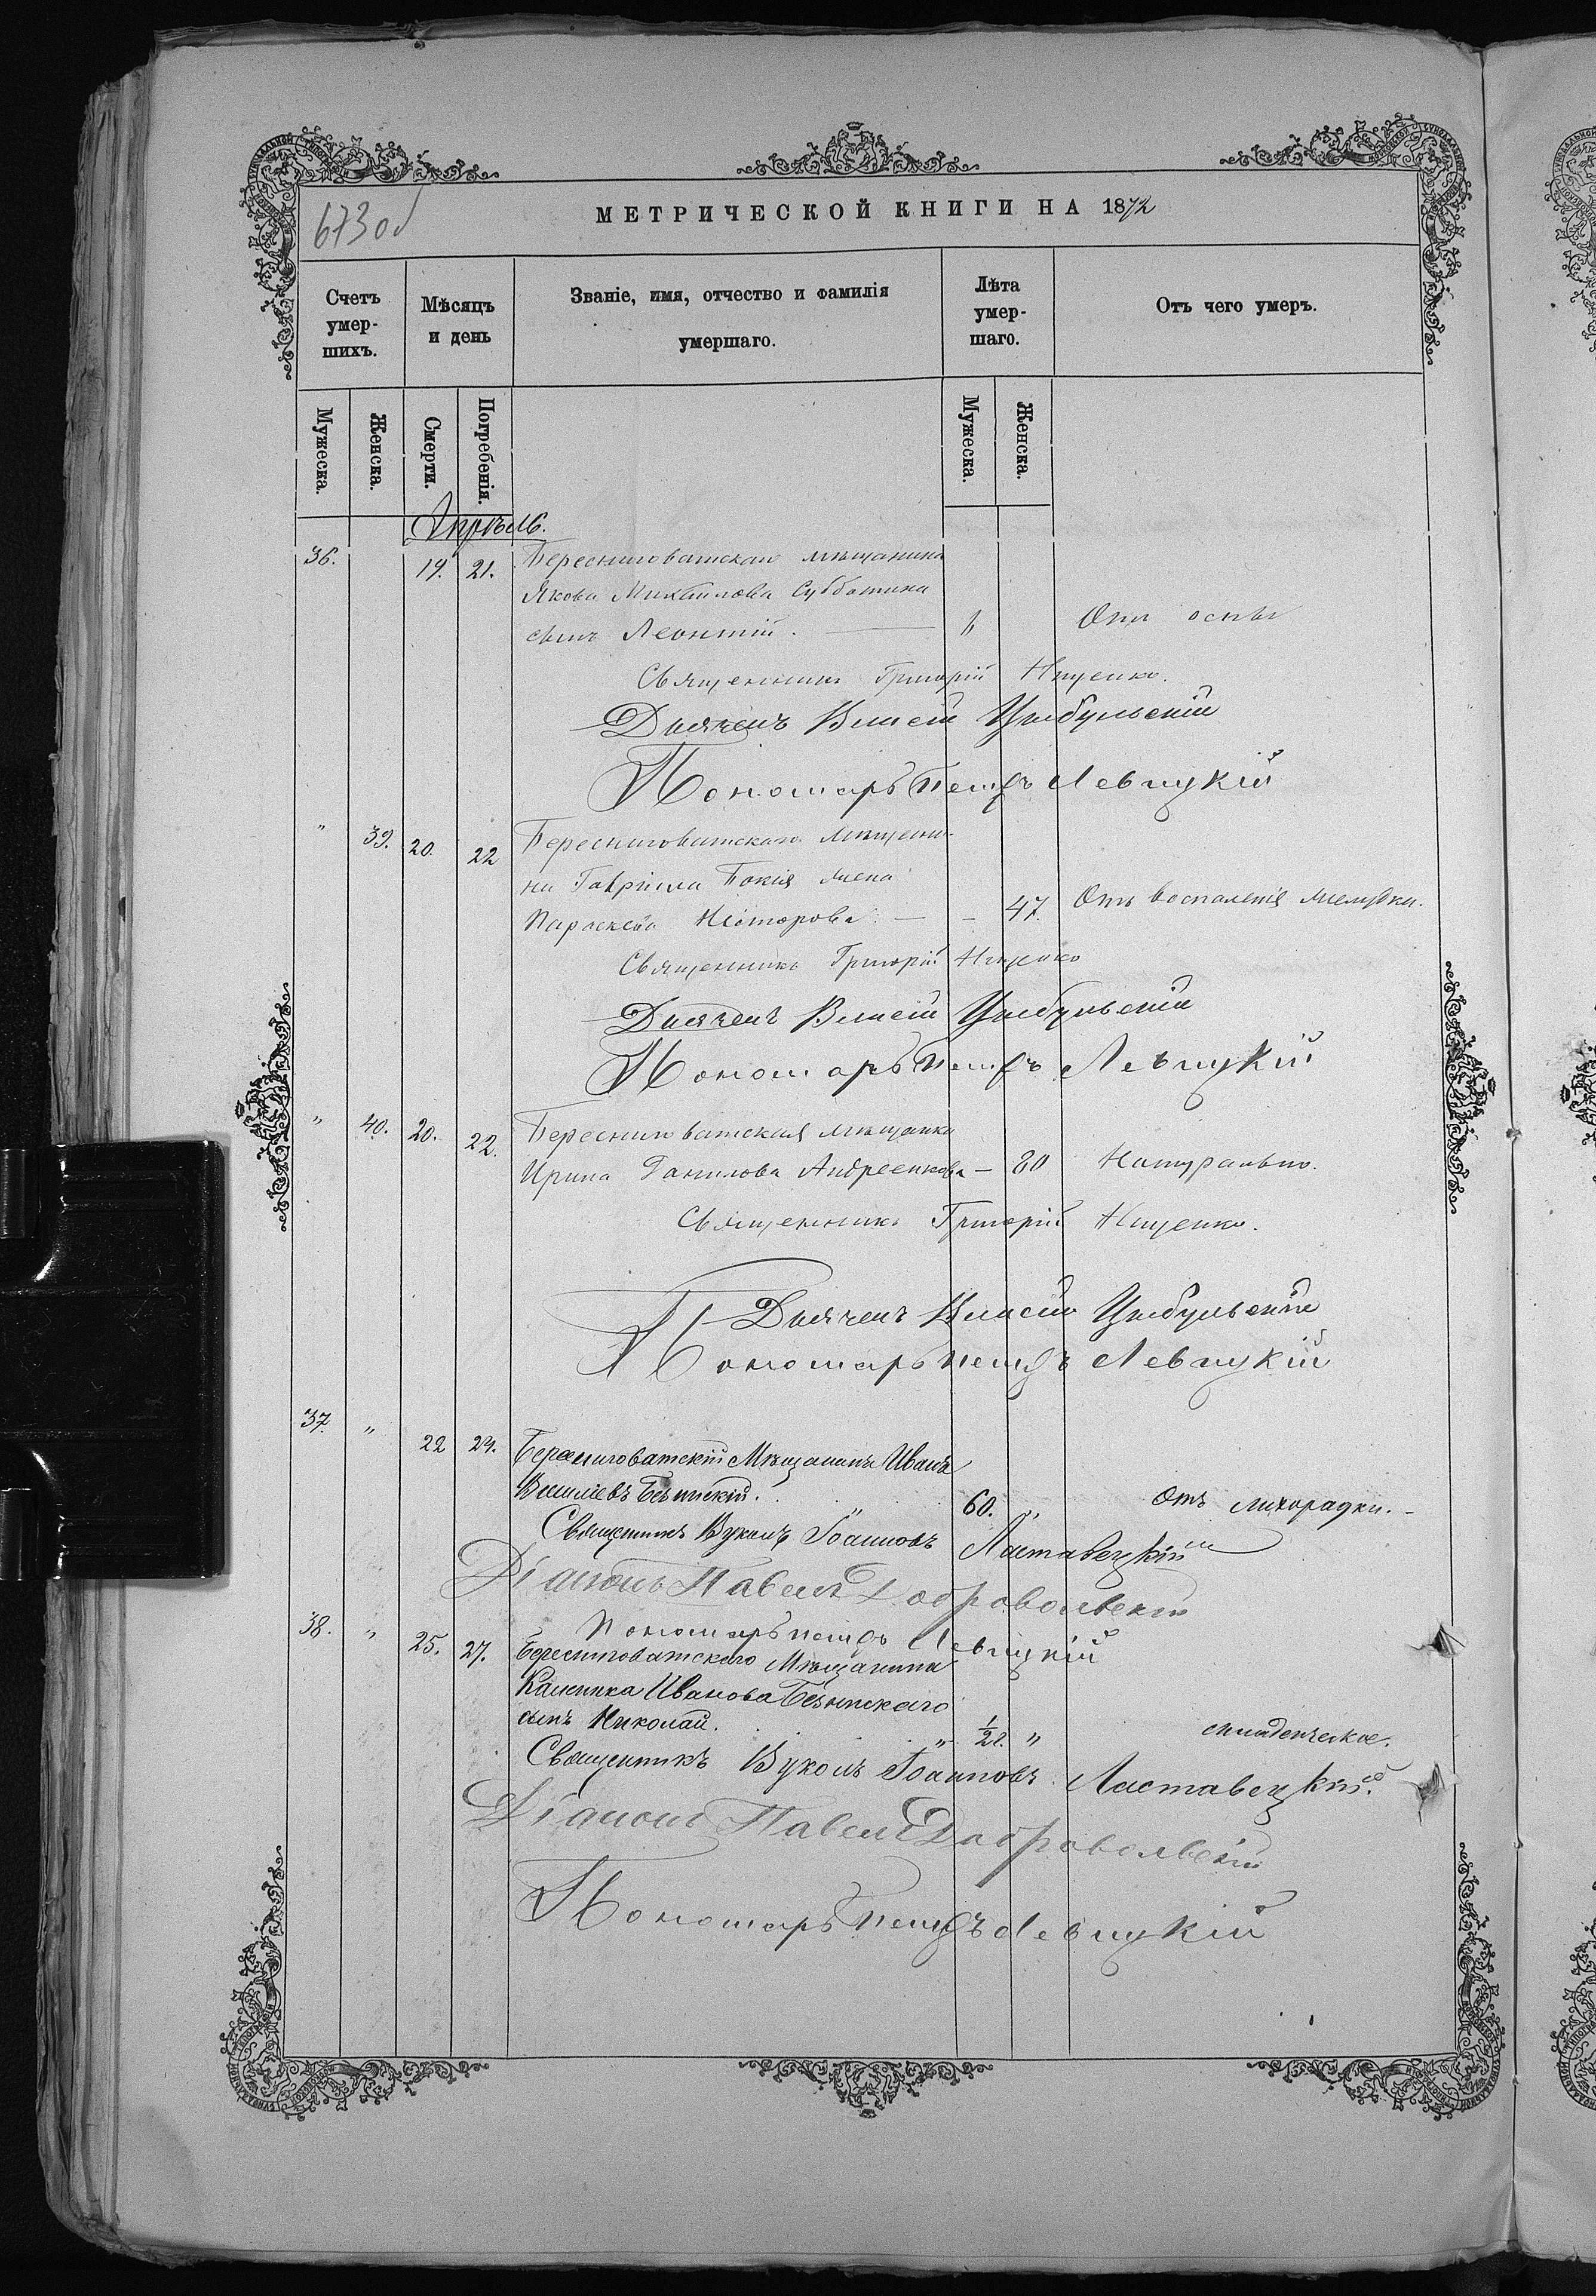 673об
МЕТРИЧЕСКОЙ КНИГИ НА 1872
Счетъ умер-шихъ.
Мѣсяцъ и день
Званіе, имя, отчество и фамилія умершаго.
Лѣта умер-шаго.
Отъ чего умеръ.
Мужеска.
Женска.
Смерти.
Погребенія.
Мужеска.
Женска.
Апрѣль.
36. 19. 21. Бересниговатскаго мѣщанина
Якова Михайлова Субботина
сынъ Леонтій. Отъ оспы
Священникъ Григорій Нищенко.
Дьячекъ Власій Цыбульскій
Пономарь Петръ Левицкій
" 39. 20. 22 Бересниговатскаго мѣщани-
на Гавріила Бокія жена
Параскева — — 47. Отъ воспаленія желудка.
Священникъ Григорій Нищенко
Дьячекъ Власій Цыбульскій
Пономарь Петръ Левицкій
" 40. 20. 22. Бересниговатская мѣщанка
Ирина Данилова Андреенкова — 80 Натурально.
Священникъ Григорій Нищенко.
Дьячекъ Власій Цыбульскій
Пономарь Петръ Левицкій
37. " 22 24. Бересниговатскій Мѣщанинъ Иванъ
Василіевъ 60. " Отъ лихорадки.
Священникъ Вуколъ Іоанновъ Ластавецкій
Діаконъ Павелъ Добровольскій
Пономарь Петръ Левицкій
38. " 25. 27. Бересниговатскаго Мѣщанина
Калиника Иванова
сынъ Николай. " ½г. " младенческое.
Священникъ Вуколъ Іоанновъ Ластавецкій.
Діаконъ Павелъ Добровольскій
Пономарь Петръ Левицкій